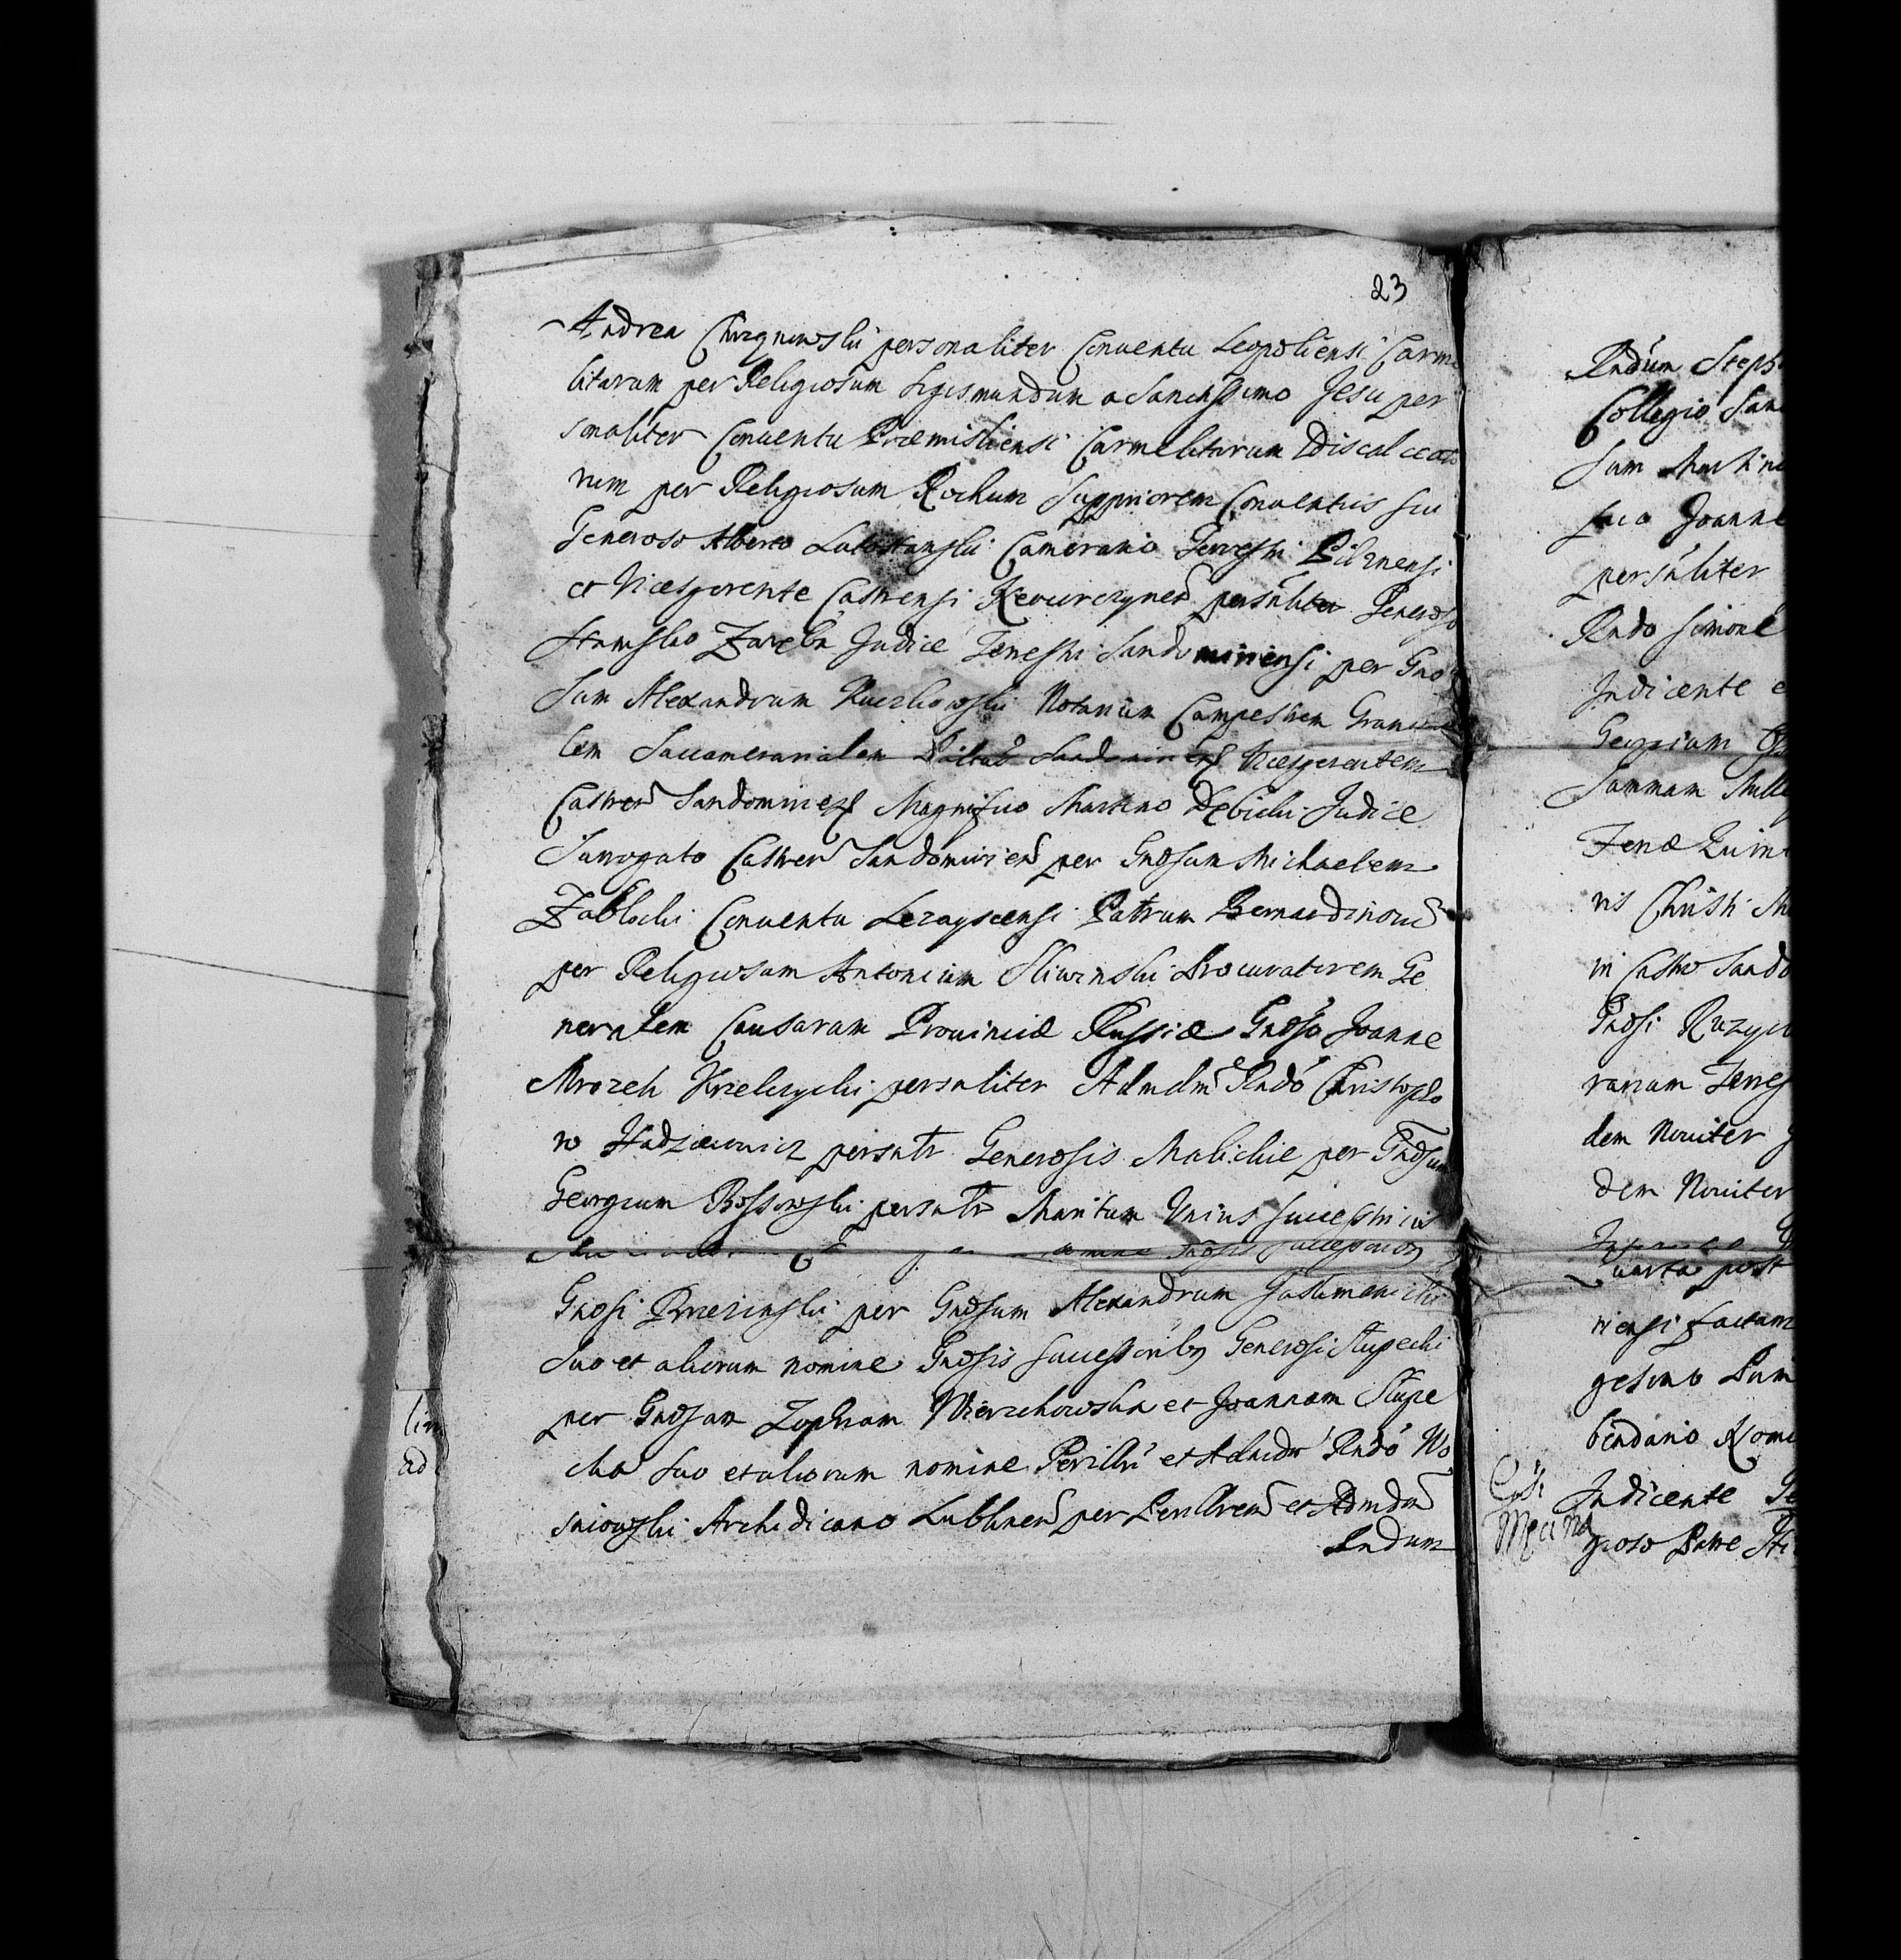 23
Andrea Chrzgnowski personaliter Conuentu Leopoliensi Carme
litarum per Religiosum Sigismundum a Sanctissimo Jesu per
sonaliter Conuentu Præmisliensi Carmelitarum Discalceato
rum per Religiosum Rochum Suppriorem Conuentus sui
Generoso Alberto Lutostanski Camerario Terrestri Pilznensi
et Vicesgerente Castrensi persnliter Generoso
Stanislao Zareba Judice Terrestri Sandomiriensi per Gno
sum Alexandrum Notarium Campestrem Granicia
lem Succamerarialem Vicesgerentem
Castren Sandomirien Magnifico Martino Debicki Judice
Surrogato Castren Sandomirien per Gnosum Michaelem
Zablocki Conuentu Lezayscensi Patrum Bernardinorum
per Religiosum Antonium Sliwinski Procuratorem Ge
neralem Causarum Prouinciæ Russiæ Gnoso Joanne
Mrozek persnliter Admdm Rndo Christopho
ro Hadziewicz persntr Generosis Malickie per Gnosum
Georgium Bossowski persntr Maritum Unius successtricis
nomine Gnosis successorib9
Gnosi Brzezinski per Gnosum Alexandrum
suo et aliorum nomine Gnosis successorib9 Generosi Slupecki
per Gnosam Zophiam Wierzchowska et Joannam Slupe
cka suo et aliorum nomine Perillri et Admdm Rndo Wo
sniowski Archidicano Lublinen per Perillrem et Admdm
Rndum
Rndum Steph
Collegio San
sum Martin
suo Joanne
persnliter
Rndo Simone
Judicente e
Georgium
Summam Mille
Fenæ Quin
ris Christi M
in Castro Sando
Gnosi
rarium Terres
dem Nouiter
dem Nouiter
Quarta post
riensi factam
gesimo Prim
bendario
Judicente Ge
gioso Patre St
lim
ad